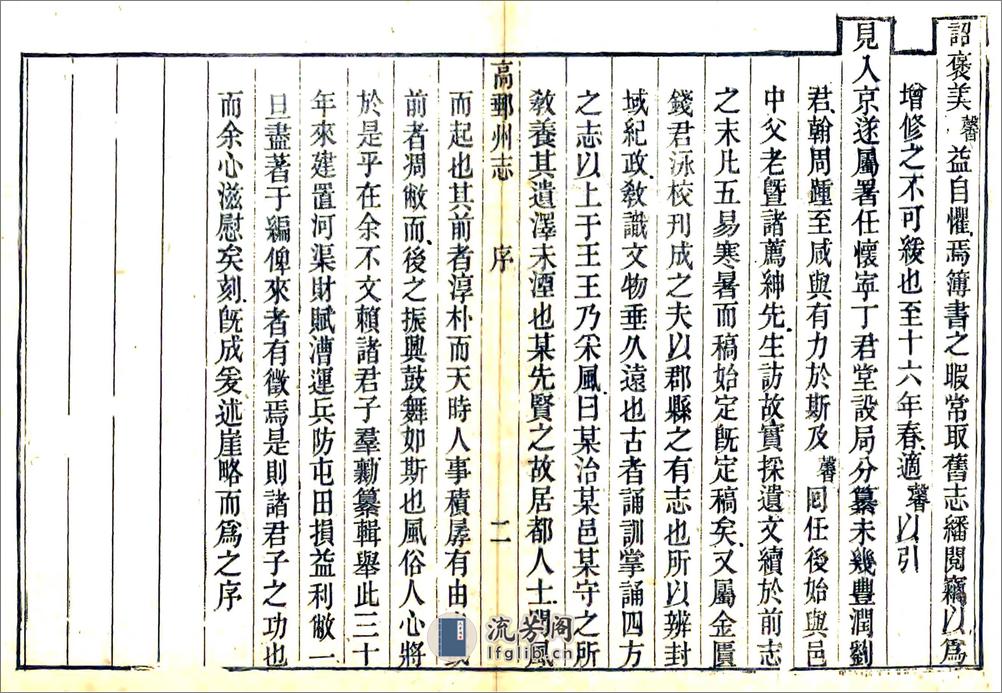 詔褒美馨益自懼焉簿書之暇常取舊志繙閱竊以爲
增修之不可緩也至十六年春適馨以引
見入京遂屬署任懷寧丁君堂設局分纂未幾豐潤劉
君翰周踵至咸與有力於斯及馨囘任後始與邑
中父老曁諸薦紳先生訪故實採遺文續於前志
之末凡五易寒暑而稿始定旣定稿矣又屬金匱
錢君泳校刊成之夫以郡縣之有志也所以辨封
域紀政敎識文物垂久遠也古者誦訓掌誦四方
之志以上于王王乃采風曰某治某邑某守之所
敎養其遺澤未湮也某先賢之故居都人士聞風
高郵州志 序 二
而起也其前者淳朴而天時人事積孱有由
前者凋敝而後之振興鼓舞如斯也風俗人心將
於是乎在余不文賴諸君子羣勷纂輯舉此三十
年來建置河渠財賦漕運兵防屯田損益利敝一
旦盡著于編俾來者有徵焉是則諸君子之功也
而余心滋慰矣刻旣成爰述崖略而爲之序
流芳阁
lfglib.cn